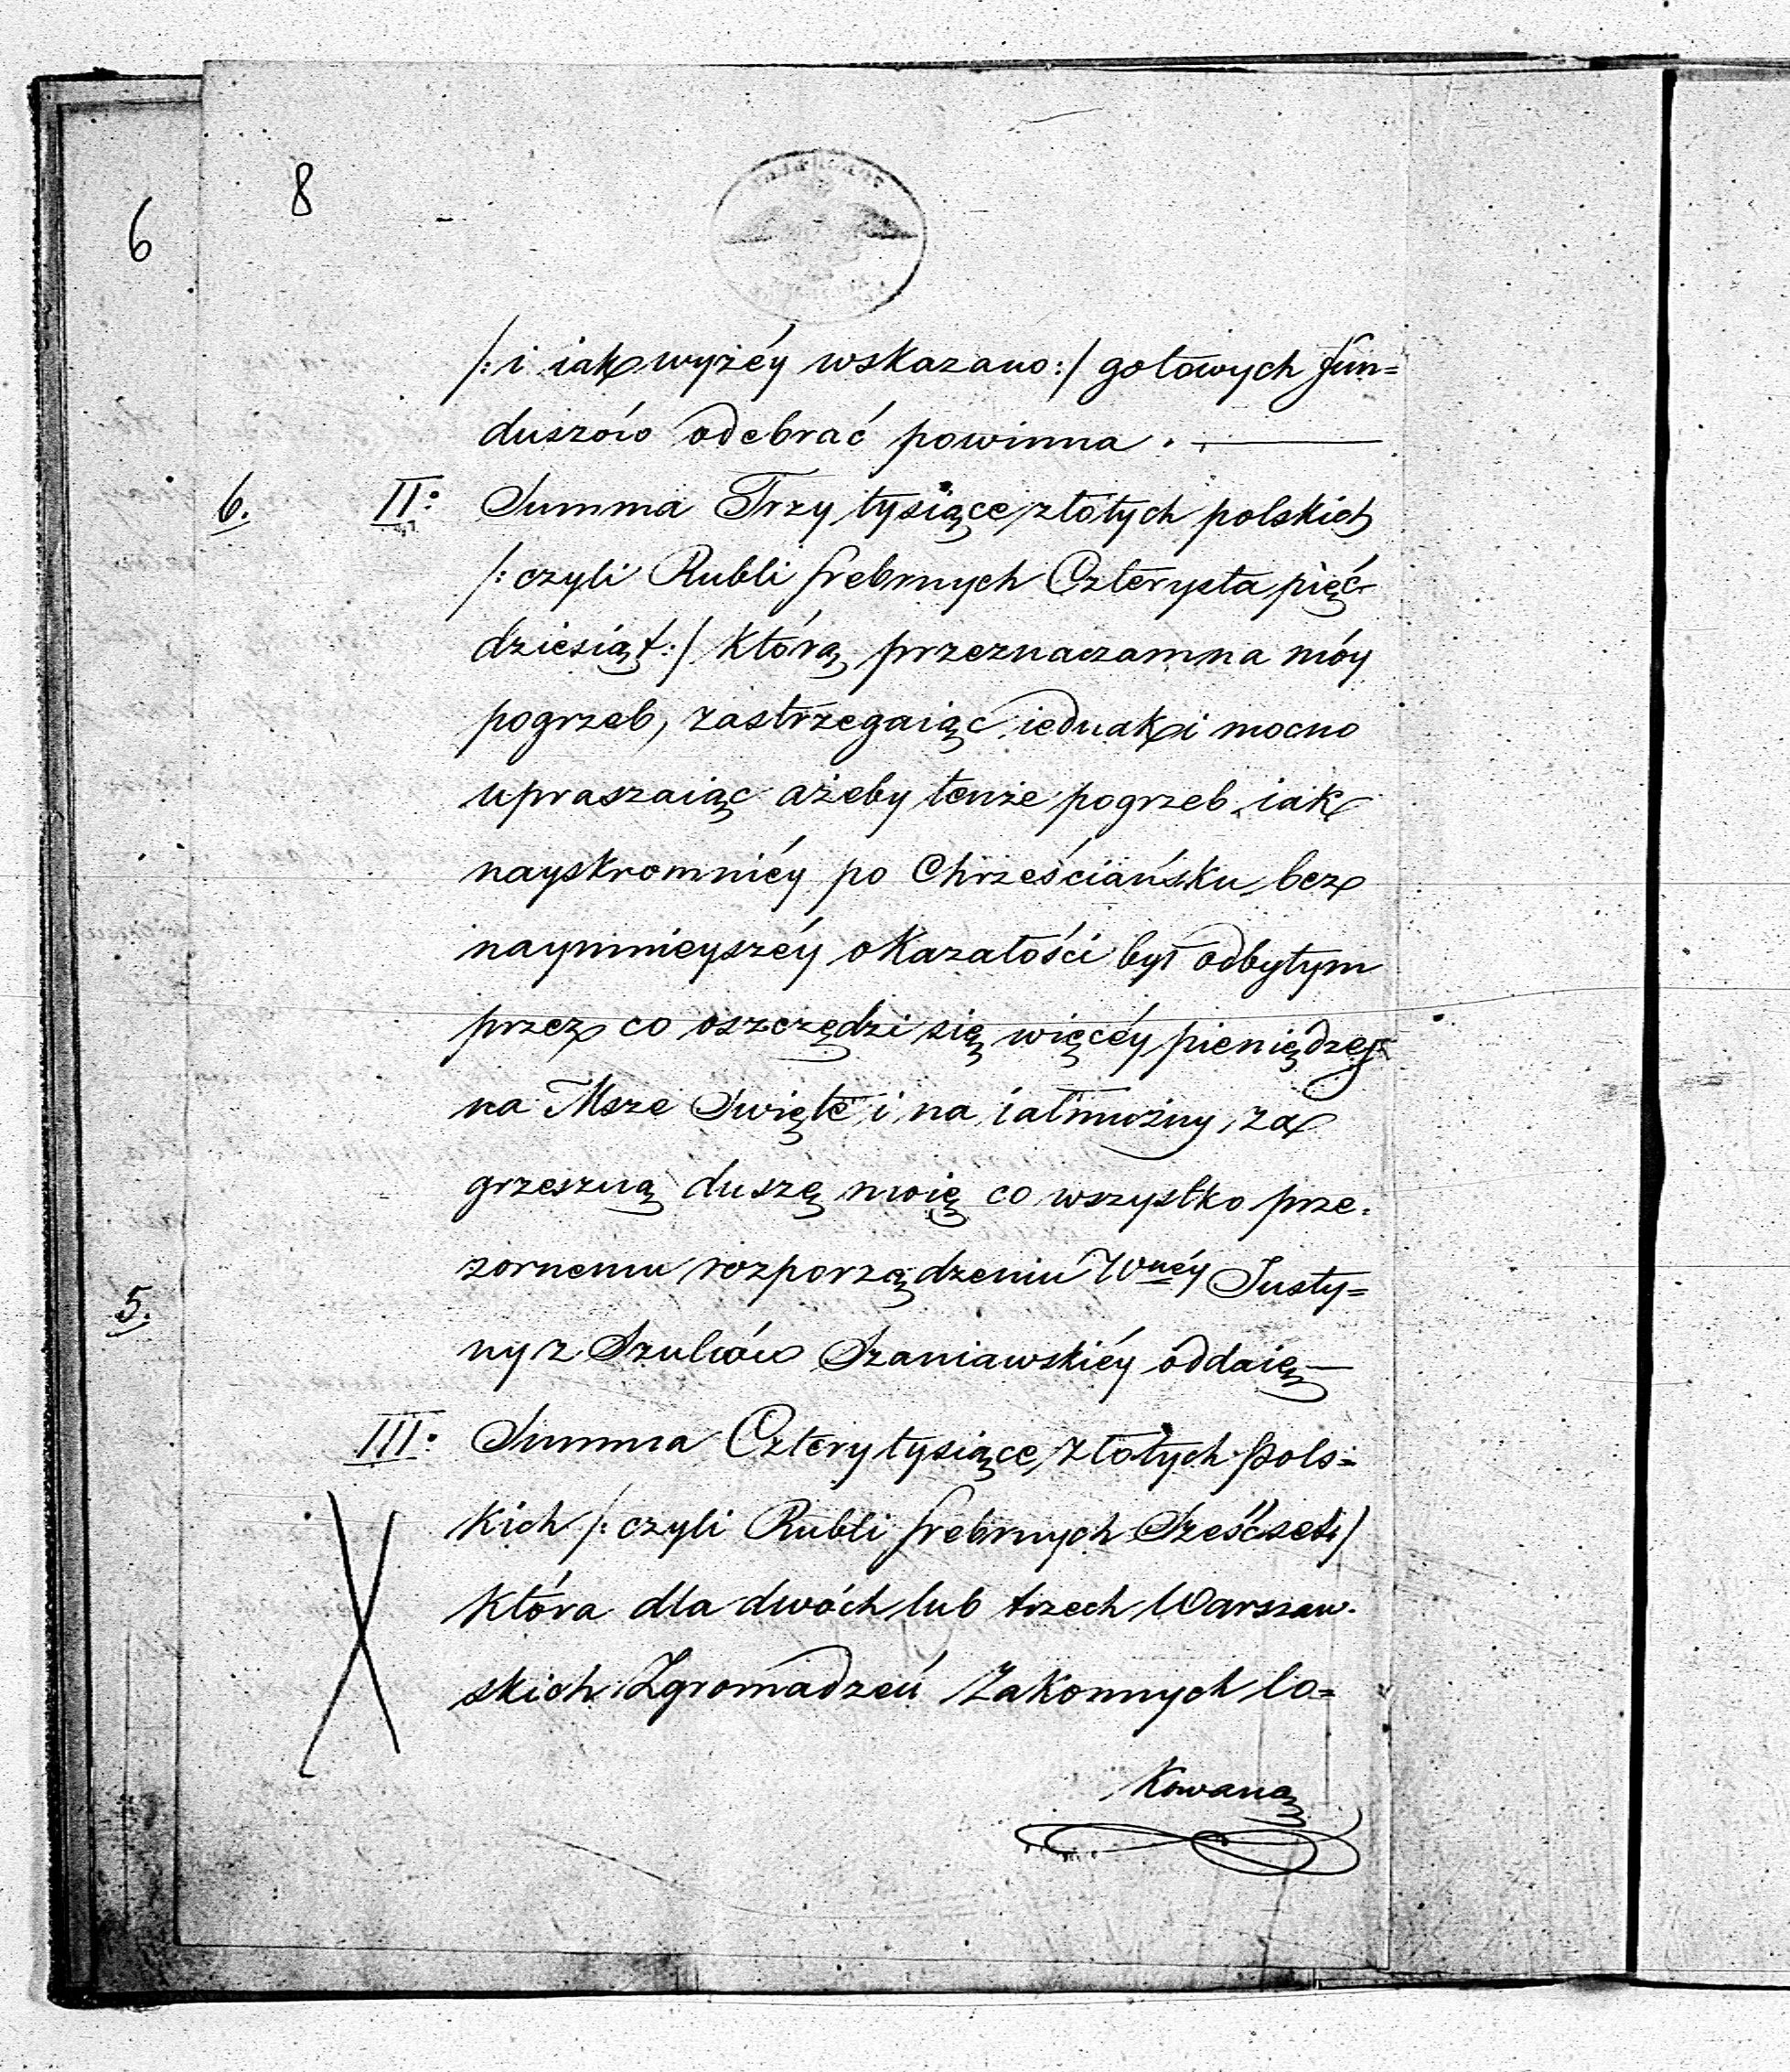 8
6
/: i iak wyżéy wskazano:/ gotowych fun=
duszów odebrać powinna.
6. II: Summa Trzy tysiące złotych polskich
/: czyli Rubli srebrnych Czterysta pięć
dziesiąt:/ którą przeznaczam na móy
pogrzeb, zastrzegaiąc iednak i mocno
upraszaiąc ażeby tenże pogrzeb iak
nayskromniéy po Chrześciańsku, bez
naymnieyszéy okazałości był odbytym
przez co oszczędzi się więcéy pieniędzy
na Msze Swięte i na iałmużny, za
grzeszną duszę moię co wszystko prze-
zornemu rozporządzeniu Wnéy Justy=
5.
ny z Szulców Szaniawskiéy oddaię
III: Summa Cztery tysiące złotych pols=
kich /: czyli Rubli srebrnych Sześćset:/
która dla dwóch lub trzech Warszaw-
skich Zgromadzeń Zakonnych lo=
kowaną